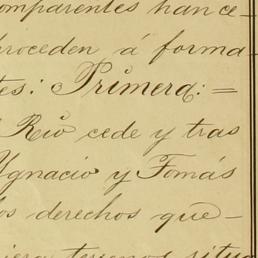 omparentes han ce-
proceden á forma-
tes: Primera: =
Rio cede y tras
Ygnacio y Tomás
os derechos que-